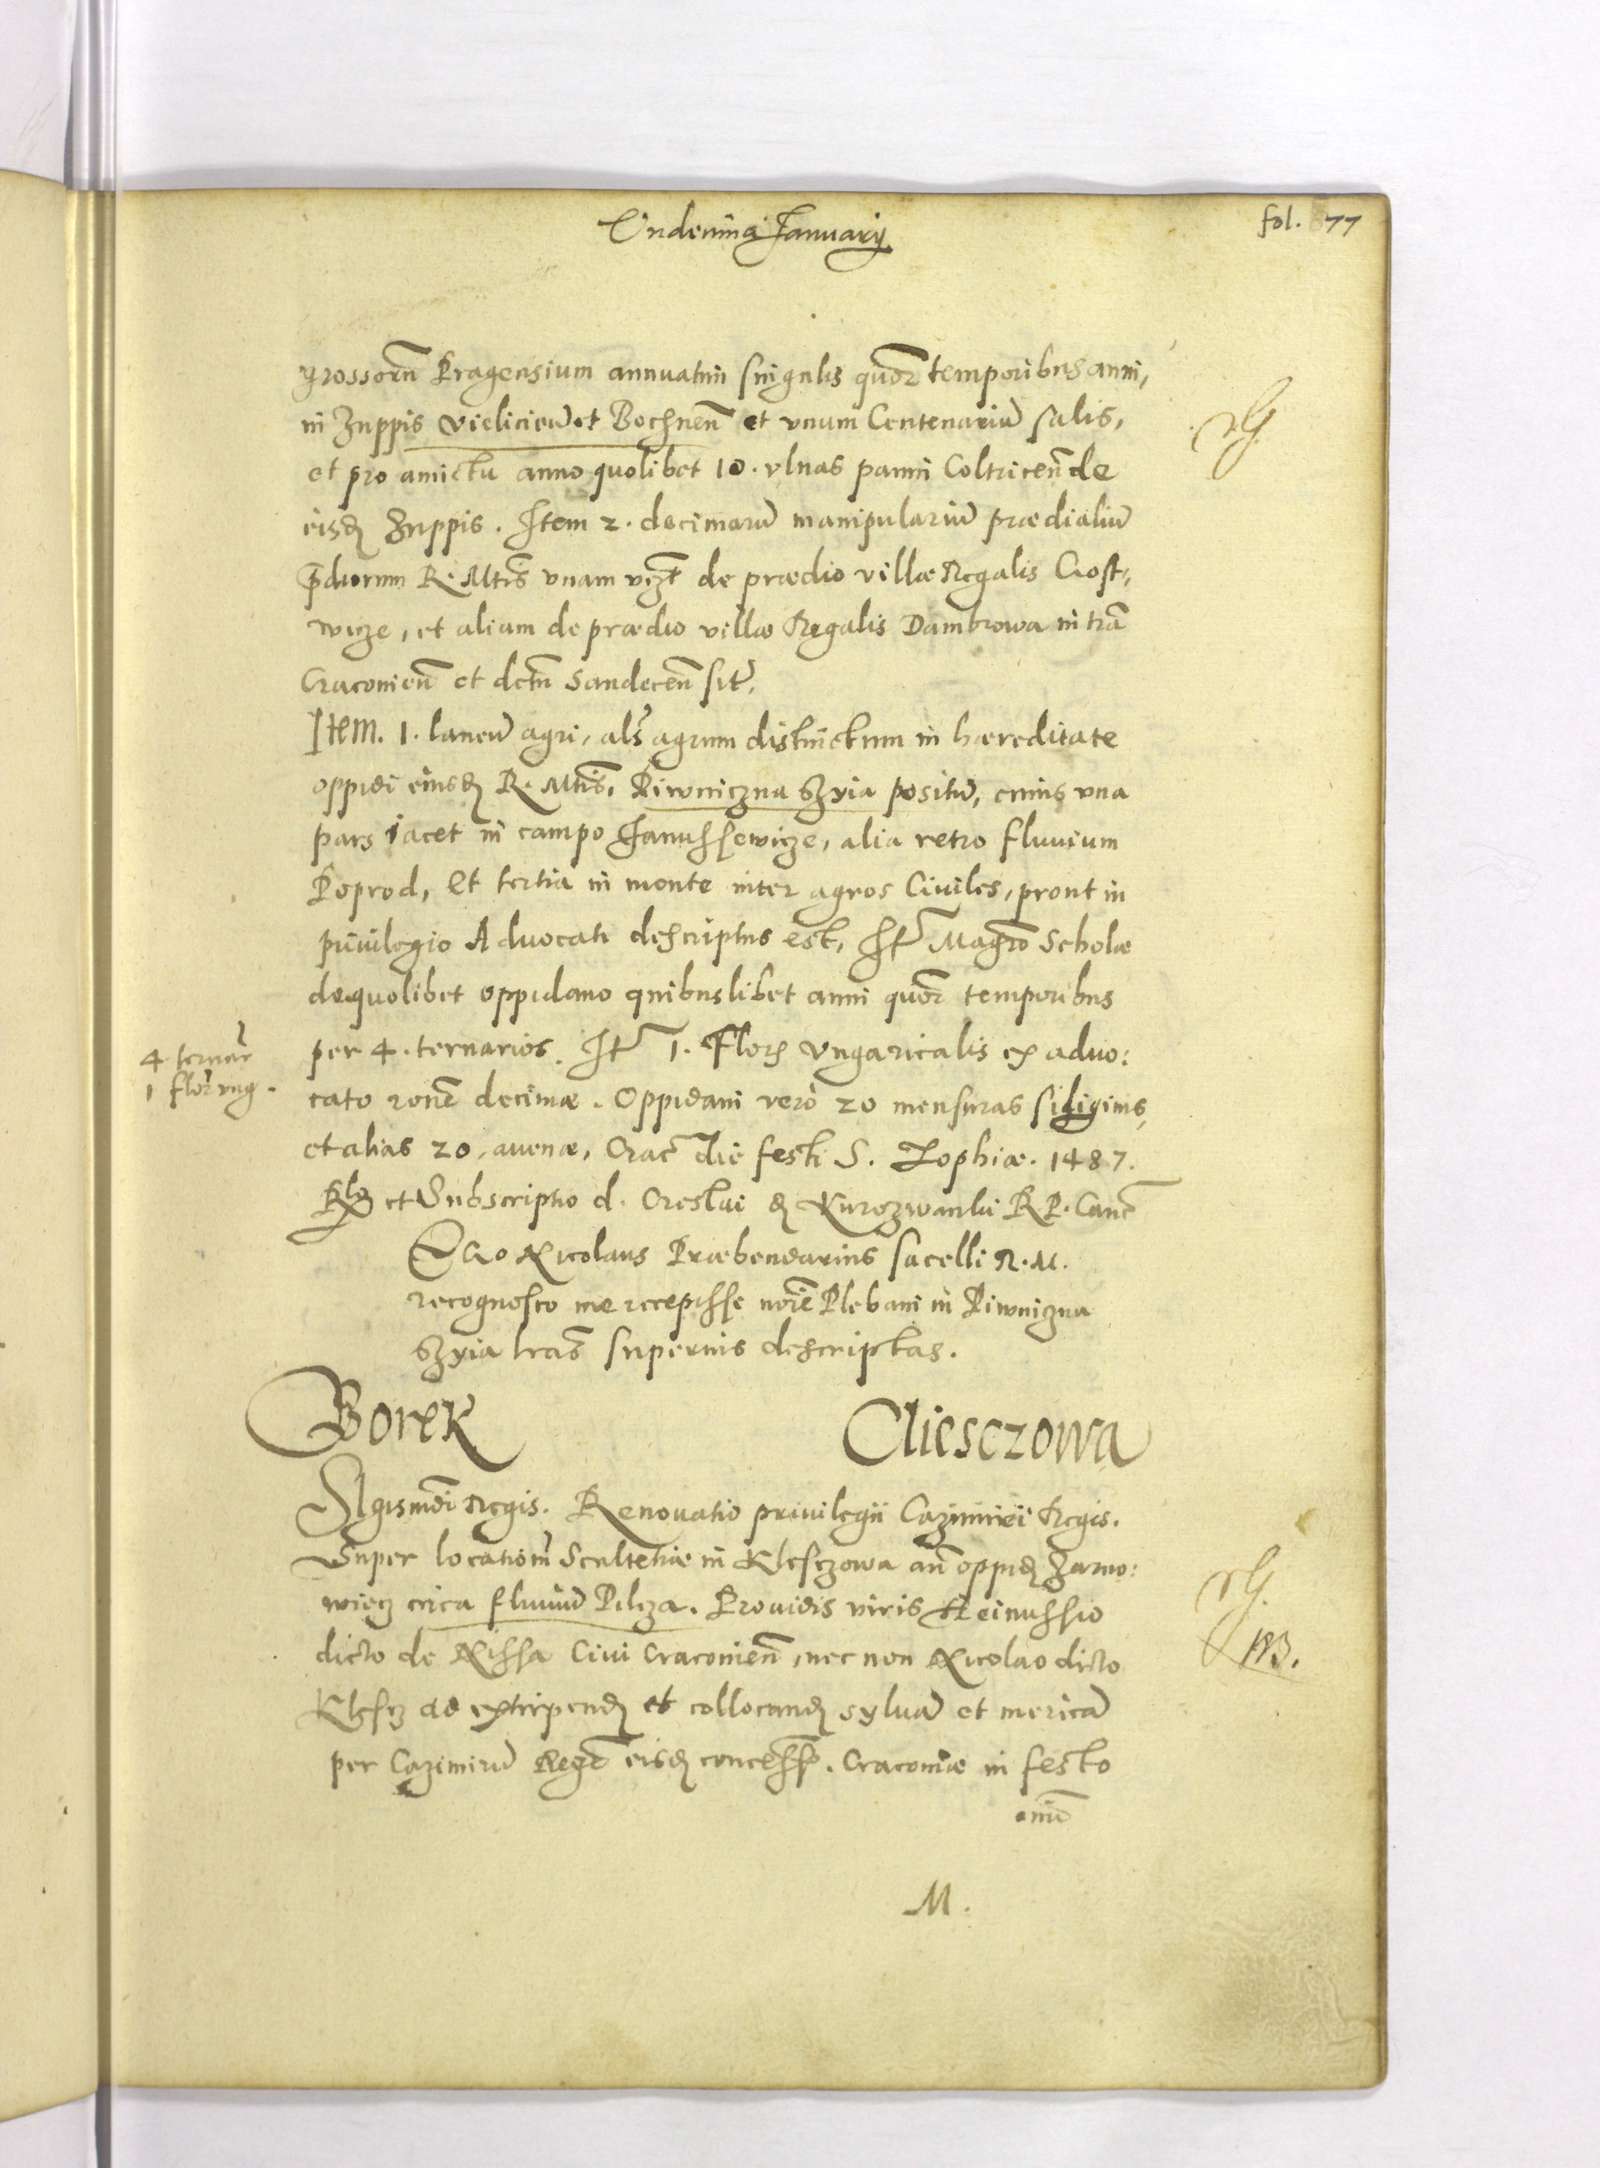 Undecima January
fol. 77
grossorū Pragensium annuatim singulis quor̄ temporibus anni,
in Zuppis Vielicień et Bochnen̄ et vnum Centenariū salis,
et pro amictu anno quolibet 10. vlnas panni Coltricen̄ de
eisd Zuppis. Item 2. decimarū manipulariū prædialiū
p̄diorum R. Mtis vnam vizt de prædio villæ Regalis Gost,
wicze, et aliam de prædio villæ Regalis Dambrowa in tr̄a
Craconien̄ et dctū Sandecen̄ sit,
Item. 1. laneū agri, als agrum distinctum in hæreditate
oppidi eiusd R. Mtis, Piwniczna Szyia positū, cuius vna
pars iacet in campo Janussewicze, alia retro fluuium
Poprod, et tertia in monte inter agros Ciuiles, prout in
priuilegio Aduocati descriptus est, It Magr̄o Scholæ
de quolibet oppidano quibuslibet anni quor̄ temporibus
per 4. ternarios. It 1. Flor Vngaricalis ex aduo:
4 ternar
1 flor vng.
cato rone decimæ. Oppidani verò 20 mensuras siliginis,
et alias 20. auenæ, Crac die festi S. Zophiæ. 1487.
et Subscriptio d. Creslai d Kurozwanki R P. Canc
Ego Nicolaus Præbendarius sacelli R. M.
recognosco me recepisse noīe Plebani in Piwniczna
Szyia lras superius descriptas.
Borek Cliesczowa
Sigismūdi Regis. Renouatio priuilegii Cazimiri Regis.
Super locationē Scultetiæ in Klesczowa an̄ oppid Zarno:
wiecz circa fluuiū Pilcza. Prouidis viris Heinussio
dicto de Nissa Ciui Cracouien̄, nec non Nicolao dicto
Klescz ad extirpend et collocand syluā et mericā
per Cazimirū Regē eisd concess. Cracouiæ in festo
oniū
M.
183.